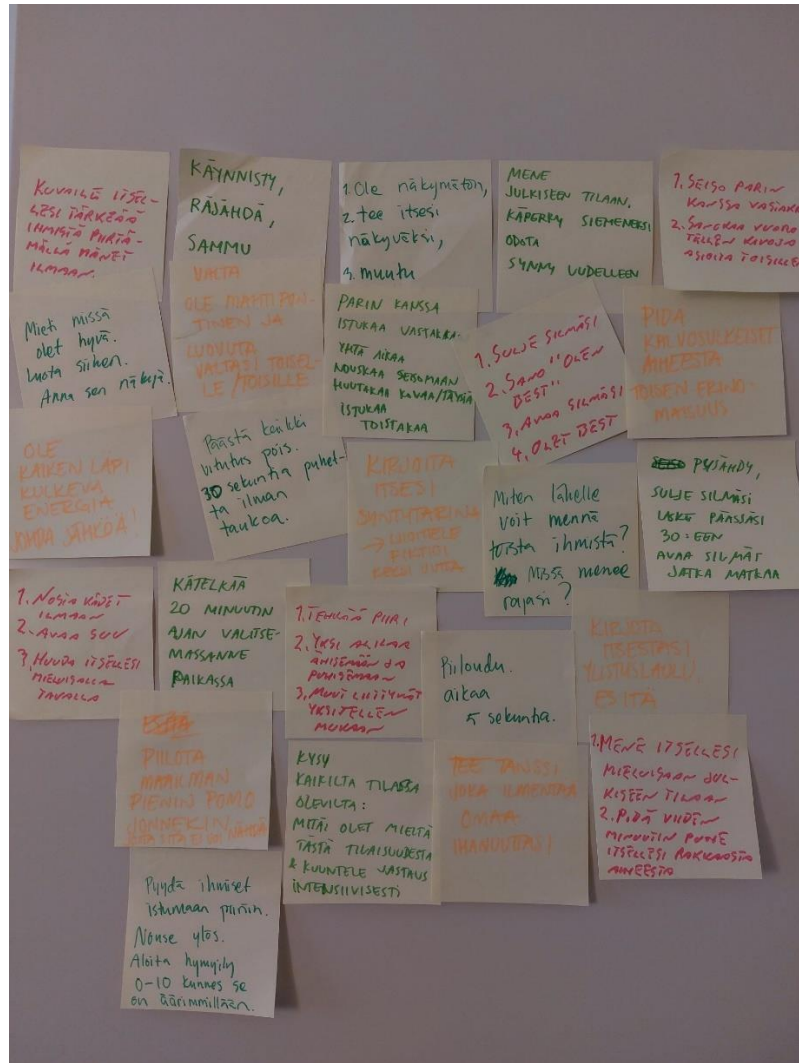 KUVAILE ITSEL-
LESI TÄRKEÄÄ
IHMISTÄ PIIRTÄ-
MÄLLÄ HÄNET
ILMAAN.
KÄYNNISTY,
RÄJÄHDÄ,
SAMMU
1. Ole näkymätön,
2. tee itsesi
näkyväksi,
3. muutu
MENE
JULKISEEN TILAAN.
KÄPERRY SIEMENEKSI
ODOTA
SYNNY UUDELLEEN
1. SEISO PARIN
KANSSA VASTAKK
2. SANOKAA VUORO
TELLEN KIVOJA
ASIOITA TOISILLE
Mieti missä
olet hyvä.
Luota siihen.
Anna sen näkyä.
VALTA
OLE MAHTIPON-
TINEN JA
LUOVUTA
VALTASI TOISEL-
LE / TOISILLE
PARIN KANSSA
ISTUKAA VASTAKKA-
YHTÄ AIKAA
NOUSKAA SEISOMAAN
HUUTAKAA KOVAA/TÄYSIÄ
ISTUKAA
TOISTAKAA
1. SULJE SILMÄSI
2. SANO "OLEN
BEST"
3. AVAA SILMÄSI
4. OLET BEST
PIDÄ
KALVOSULKEISET
AIHEESTA
TOISEN ERINO-
MAISUUS
OLE
KAIKEN LÄPI
KULKEVA
ENERGIA
JOHDA SÄHKÖÄ!
Päästä kaikki
vitutus pois.
30 sekuntia puhet-
ta ilman
taukoa.
KIRJOITA
ITSESI
SYNTYTARINA
→ LUONTELE
FIKTIOI
KEKSI UUTTA
Miten lähelle
voit mennä
toista ihmistä?
Missä menee
rajasi?
PYSÄHDY,
SULJE SILMÄSI
LASKE PÄÄSSÄSI
30:EEN
AVAA SILMÄT
JATKA MATKAA
1. NOSTA KÄDET
ILMAAN
2. AVAA SUU
3. HUUDA ITSELLESI
MIELUISALLA
TAVALLA
KÄTELKÄÄ
20 MINUUTIN
AJAN VALITSE-
MASSANNE
PAIKASSA
1. TEHKÄÄ PIIRI
2. YKSI ALKAA
ÄÄNISEMÄÄN JA
PUHISEMAAN
3. MUUT LIITTYVÄT
YKSITELLEN
MUKAAN
Piiloudu.
aikaa
5 sekuntia.
KIRJOITA
ITSESTÄSI
YLISTUSLAULU
ESITÄ
PIILOTA
MAAILMAN
PIENIN POMO
JONNEKIN
JOTA SITÄ EI VOI NÄHDÄ
KYSY
KAIKILTA TILASSA
OLEVILTA:
MITÄ OLET MIELTÄ
TÄSTÄ TILAISUUDESTA
& KUUNTELE VASTAUS
INTENSIIVISESTI
TEE TANSSI
JOKA ILMENTÄÄ
OMAA
IHANUUTTASI
1. MENE ITSELLESI
MIELUISAAN JUL-
KISEEN TILAAN
2. PIDÄ VIIDEN
MINUUTIN PUHE
ITSELLESI RAKKAASTA
AIHEESTA
Pyydä ihmiset
istumaan piiriin.
Nouse ylös.
Aloita hymyily
0-10 kunnes se
on äärimmillään.